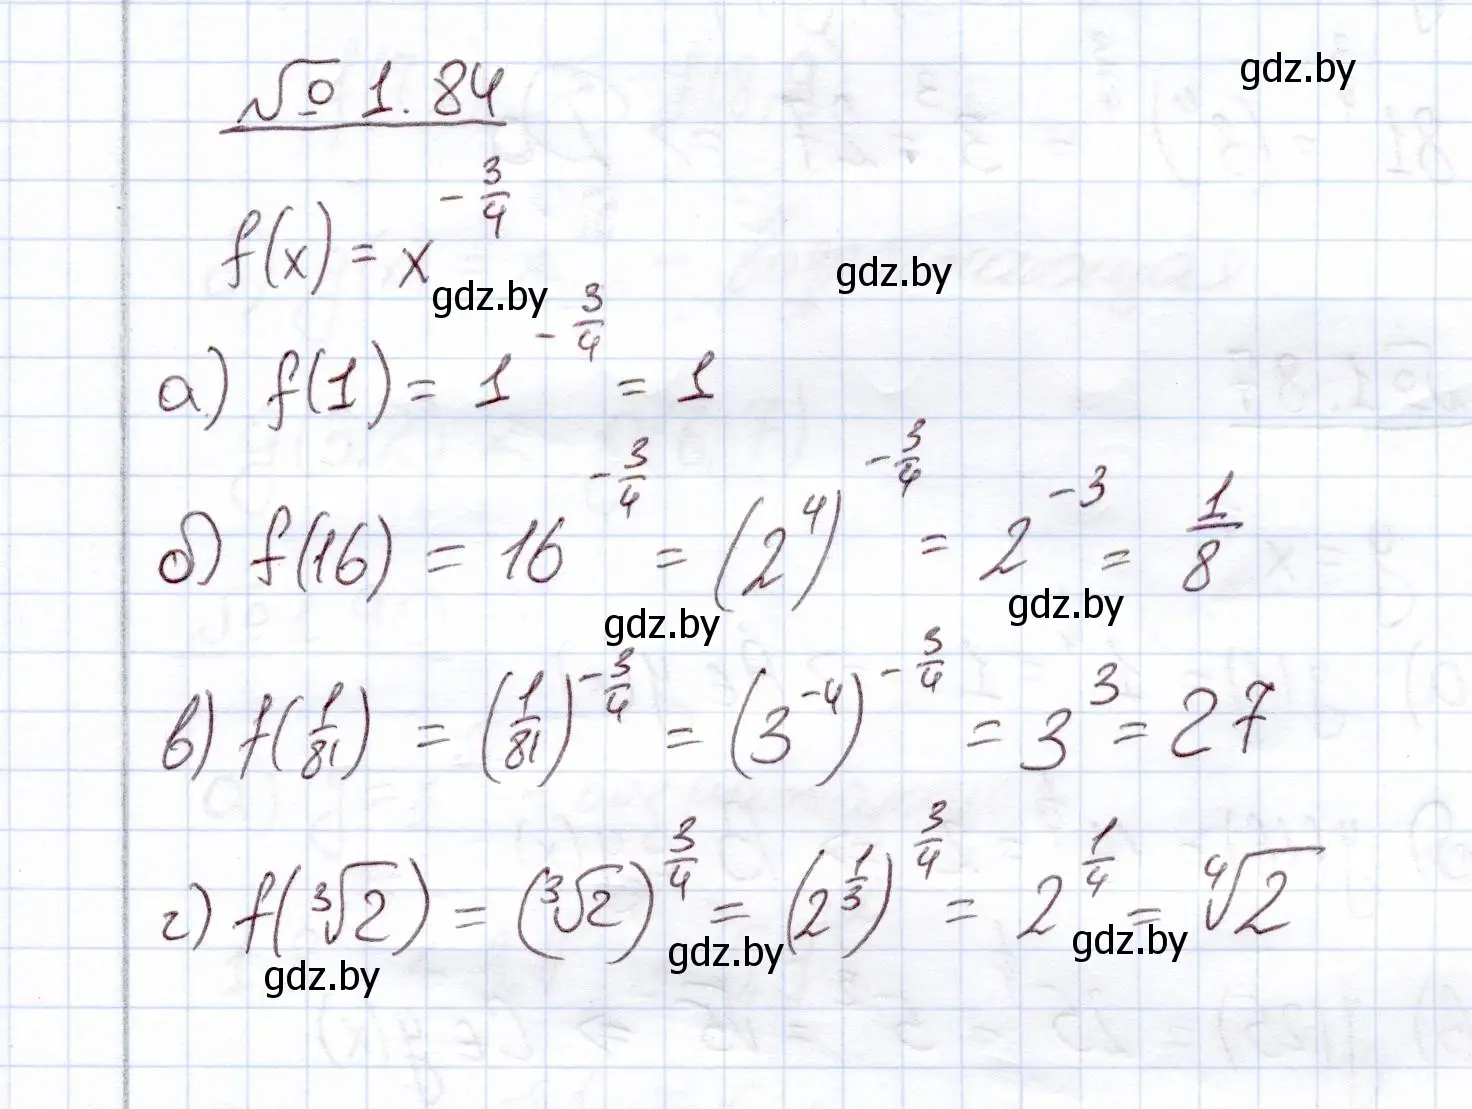 № 1.84
gdz.by
f(x) = x^(-3/4)
gdz.by
gdz.by
а) f(1) = 1^(-3/4) = 1
б) f(16) = 16^(-3/4) = (2^4)^(-3/4) = 2^(-3) = 1/8
gdz.by
gdz.by
в) f(1/81) = (1/81)^(-3/4) = (3^(-4))^(-3/4) = 3^3 = 27
г) f(∛2) = (∛2)^(3/4) = (2^(1/3))^(3/4) = 2^(1/4) = ∜2
gdz.by
gdz.by
gdz.by